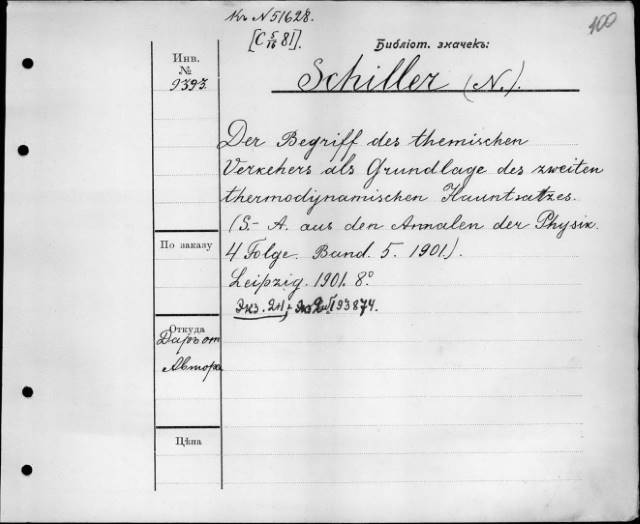 Къ N 51628.
[C 5/16 81].
400
Инв.
№
9393.
Библіот. значекъ:
Schiller (N.).
Der Begriff des themischen
Verkehers als Grundlage des zweiten
thermodynamischen Hauntsatzes.
(S.- A. aus den Annalen der Physix.
4 Folge. Band. 5. 1901.).
Leipzig. 1901. 8º
Экз. 2й;
193874.
По заказу
Откуда
Даръ от
Автора
Цѣна